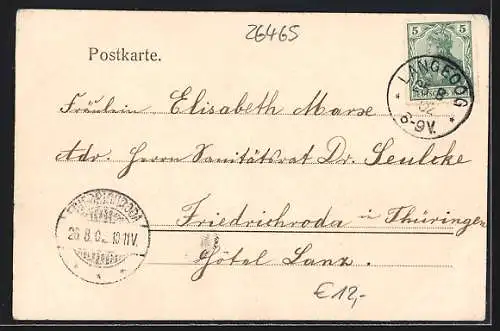 26465
5 5
Postkarte.
LANGEOOG
8-9V.
Fräulein Elisabeth Marse
Adr. Herrn Sanitätsrat Dr. Seulcke
FRIEDRICHRODA
26.8.0 10-11V.
Friedrichroda in Thüringen
Hôtel Lanz.
€12,-